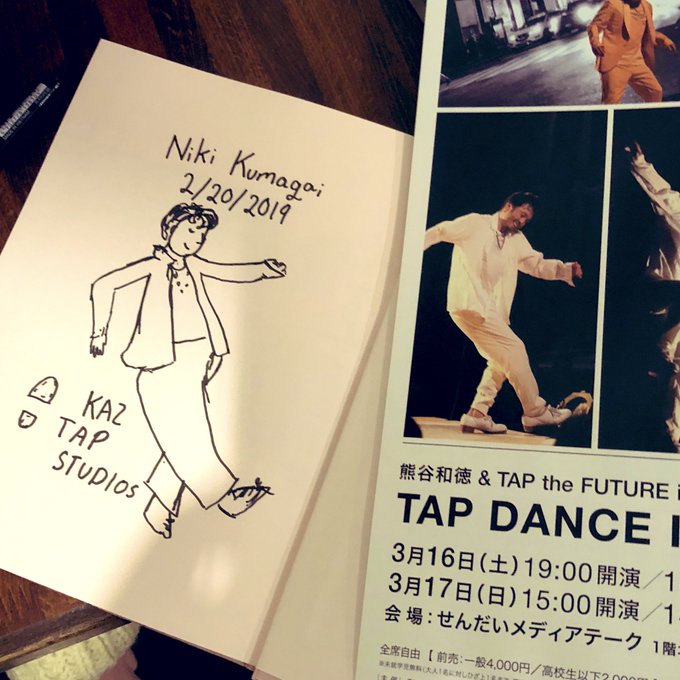 Niki Kumagai
2/20/2019
KAZ
TAP
STUDIOS
熊谷和徳 & TAP the FUTURE i
TAP DANCE I
3月16日(土)19:00開演/1
3月17日(日)15:00開演/1
会場:せんだいメディアテーク 1階
全席自由【前売:一般4,000円/高校生以下2,000円
※未就学児無料(大人1名に対しひざ上1名